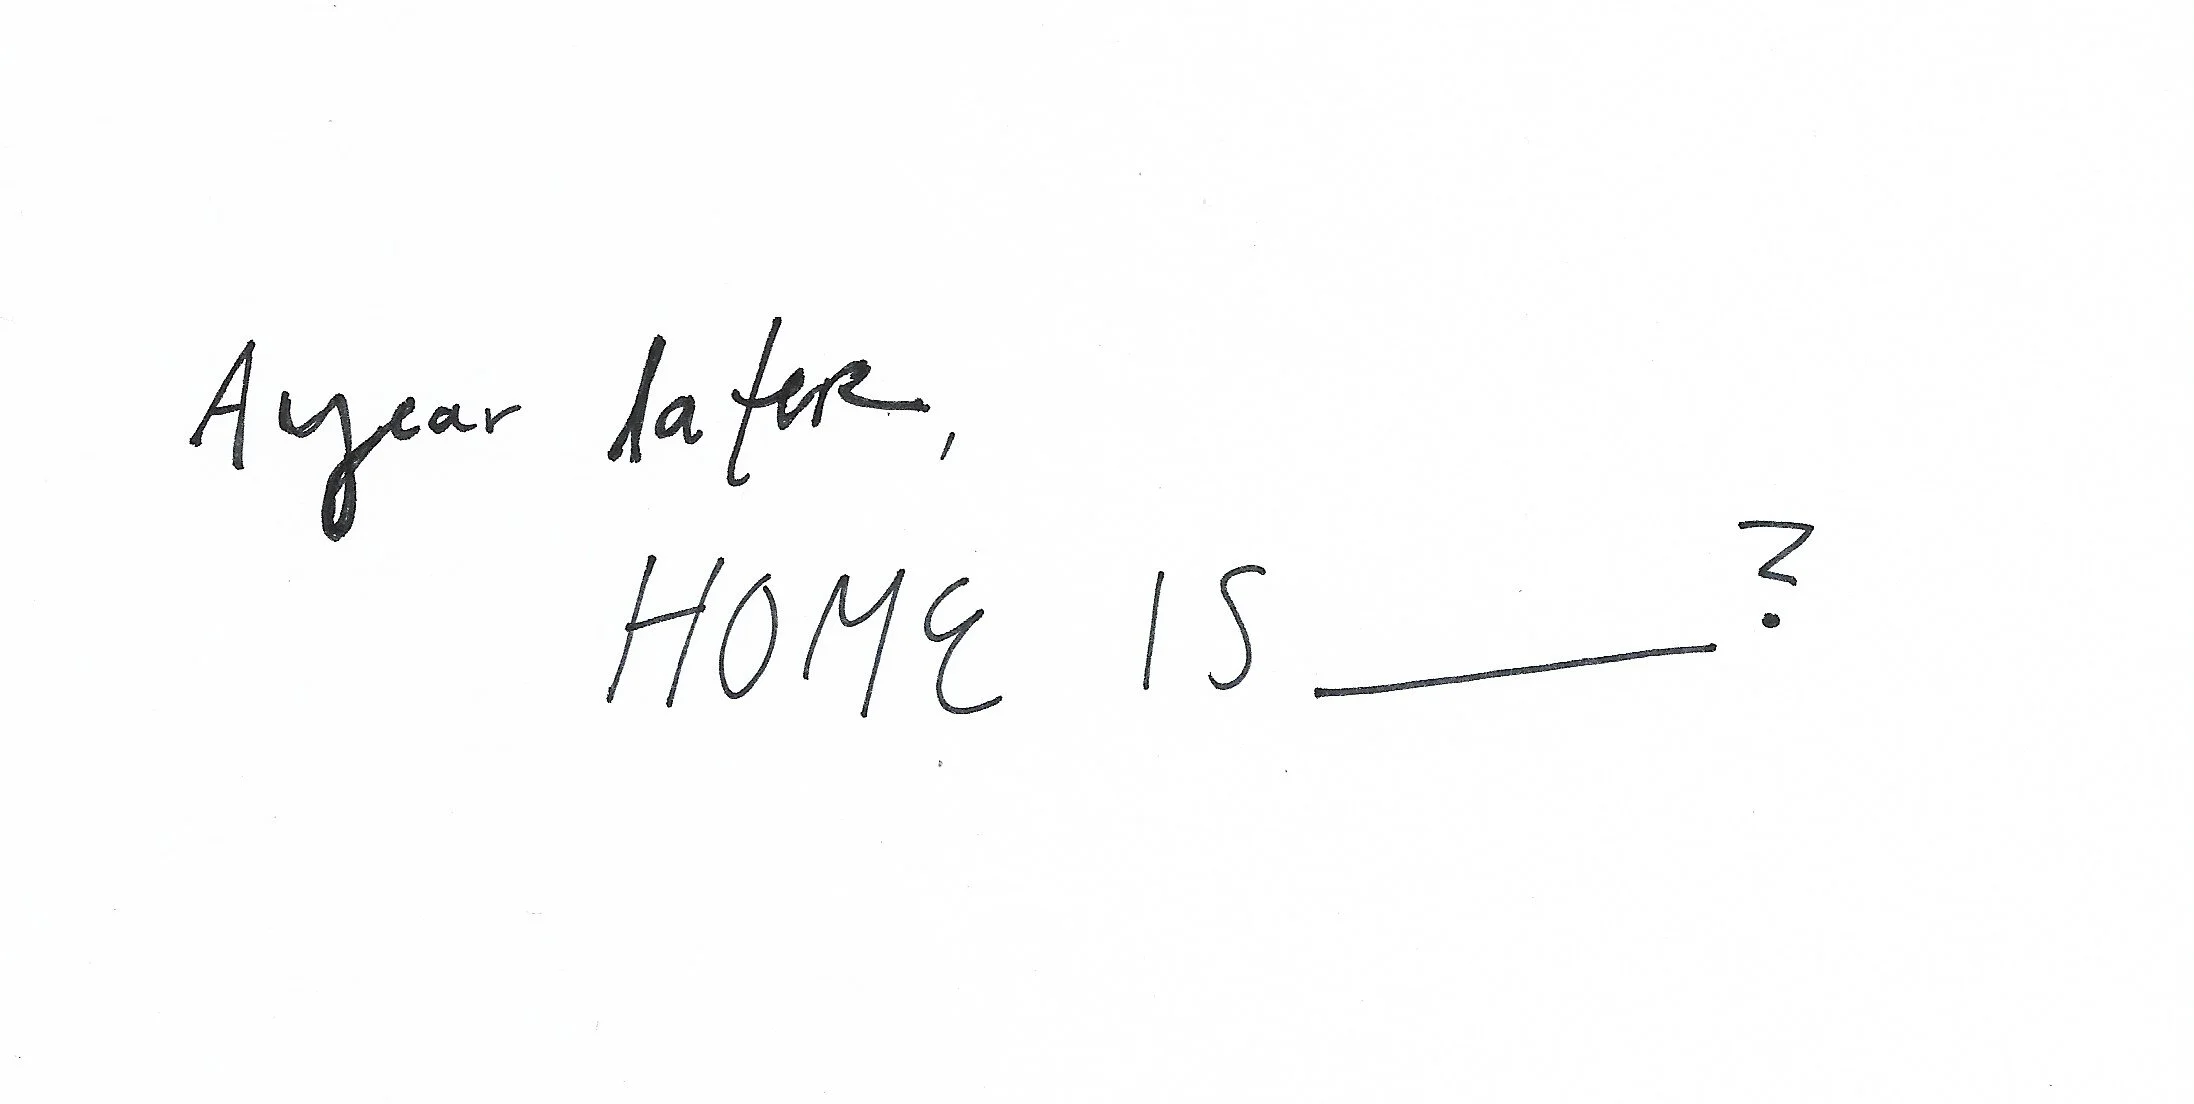 A year later,
HOME IS ______?